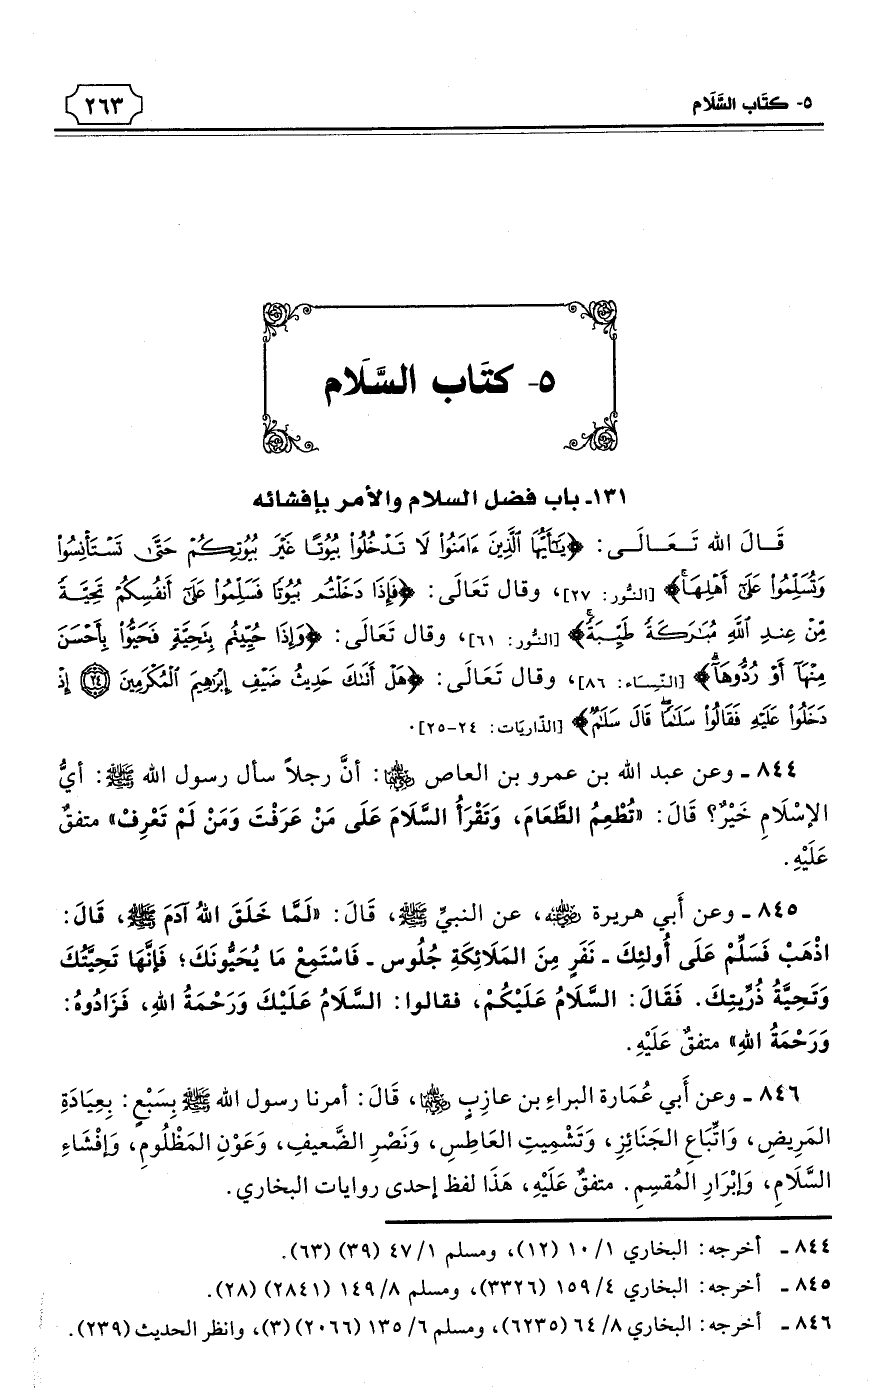 ٥- كتَاب السَّلَام
٢٦٣
٥- كتَاب السَّلَام
١٣١ـ باب فضل السلام والأمر بإفشائه
قَـالَ الله تَـعَـالَـى: ﴿يَٰٓأَيُّهَا ٱلَّذِينَ ءَامَنُوا۟ لَا تَدْخُلُوا۟ بُيُوتًا غَيْرَ بُيُوتِكُمْ حَتَّىٰ تَسْتَأْنِسُوا۟
وَتُسَلِّمُوا۟ عَلَىٰٓ أَهْلِهَا﴾ [النُّور: ٢٧]، وقال تَعَالَى: ﴿فَإِذَا دَخَلْتُم بُيُوتًا فَسَلِّمُوا۟ عَلَىٰٓ أَنفُسِكُمْ تَحِيَّةً
مِّنْ عِندِ ٱللَّهِ مُبَٰرَكَةً طَيِّبَةً﴾ [النُّور: ٦١]، وقال تَعَالَى: ﴿وَإِذَا حُيِّيتُم بِتَحِيَّةٍ فَحَيُّوا۟ بِأَحْسَنَ
مِنْهَآ أَوْ رُدُّوهَآ﴾ [النِّسَاء: ٨٦]، وقال تَعَالَى: ﴿هَلْ أَتَىٰكَ حَدِيثُ ضَيْفِ إِبْرَٰهِيمَ ٱلْمُكْرَمِينَ ٢٤ إِذْ
دَخَلُوا۟ عَلَيْهِ فَقَالُوا۟ سَلَٰمًا قَالَ سَلَٰمٌ﴾ [الذّاريَات: ٢٤-٢٥].
٨٤٤ ـ وعن عبد الله بن عمرو بن العاص ﵄: أنَّ رجلاً سأل رسول الله ﷺ: أيُّ
الإسْلَامِ خَيْرٌ؟ قَالَ: «تُطْعِمُ الطَّعَامَ، وَتَقْرَأُ السَّلَامَ عَلَى مَنْ عَرَفْتَ وَمَنْ لَمْ تَعْرِفْ» متفقٌ
عَلَيْهِ.
٨٤٥ ـ وعن أَبي هريرة ﵁، عن النبيِّ ﷺ، قَالَ: «لَمَّا خَلَقَ اللهُ آدَمَ ﷺ، قَالَ:
اذْهَبْ فَسَلِّمْ عَلَى أُولئِكَ ـ نَفَرٍ مِنَ المَلَائِكَةِ جُلُوس ـ فَاسْتَمِعْ مَا يُحَيُّونَكَ؛ فَإنَّهَا تَحِيَّتُكَ
وَتَحِيَّةُ ذُرِّيتِكَ. فَقَالَ: السَّلَامُ عَلَيْكُمْ، فقالوا: السَّلَامُ عَلَيْكَ وَرَحْمَةُ اللهِ، فَزَادُوهُ:
وَرَحْمَةُ اللهِ» متفقٌ عَلَيْهِ.
٨٤٦ ـ وعن أَبي عُمَارة البراءِ بن عازِبٍ ﵄، قَالَ: أمرنا رسول الله ﷺ بِسَبْعٍ: بِعِيَادَةِ
المَرِيضِ، وَاتِّبَاعِ الجَنَائِزِ، وَتَشْمِيتِ العَاطِسِ، وَنَصْرِ الضَّعيفِ، وَعَوْنِ المَظْلُومِ، وَإفْشَاءِ
السَّلَامِ، وَإبْرَارِ المُقسِمِ. متفقٌ عَلَيْهِ، هَذَا لفظ إحدى روايات البخاري.
٨٤٤ ـ أخرجه: البخاري ١/ ١٠ (١٢)، ومسلم ١/ ٤٧ (٣٩) (٦٣).
٨٤٥ ـ أخرجه: البخاري ٤/ ١٥٩ (٣٣٢٦)، ومسلم ٨/ ١٤٩ (٢٨٤١) (٢٨).
٨٤٦ ـ أخرجه: البخاري ٨/ ٦٤ (٦٢٣٥)، ومسلم ٦/ ١٣٥ (٢٠٦٦) (٣)، وانظر الحديث (٢٣٩).